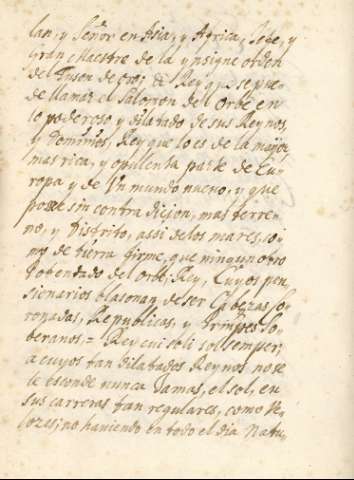 lan, y Señor en Asia, y Africa, Xefe, y
gran Maestre de la ynsigne orden
del Tuson de oro; Rey q.e se pue-
de llamar el Salomon del Orbe en
lo poderoso y dilatado de sus Reynos,
y Dominios, Rey que lo es de la mayor,
mas rica, y opulenta parte de Eu-
ropa y de Un mundo nuevo, y que
posee sin contradicion, mas terre-
no, y Distrito, assi de los mares, co-
mo de tierra firme, que ningun otro
Potentado del Orbe; Rey, Cuyos pen-
sionarios blasonan de ser Cabezas Co-
ronadas, Republicas, y Prinzipes So-
beranos = Rey cui soli sol semper,
a cuyos tan dilatados Reynos no se
le esconde nunca Jamas, el sol, en
sus carreras tan regulares, como Ve-
lozes; no haviendo en todo el dia Natu-